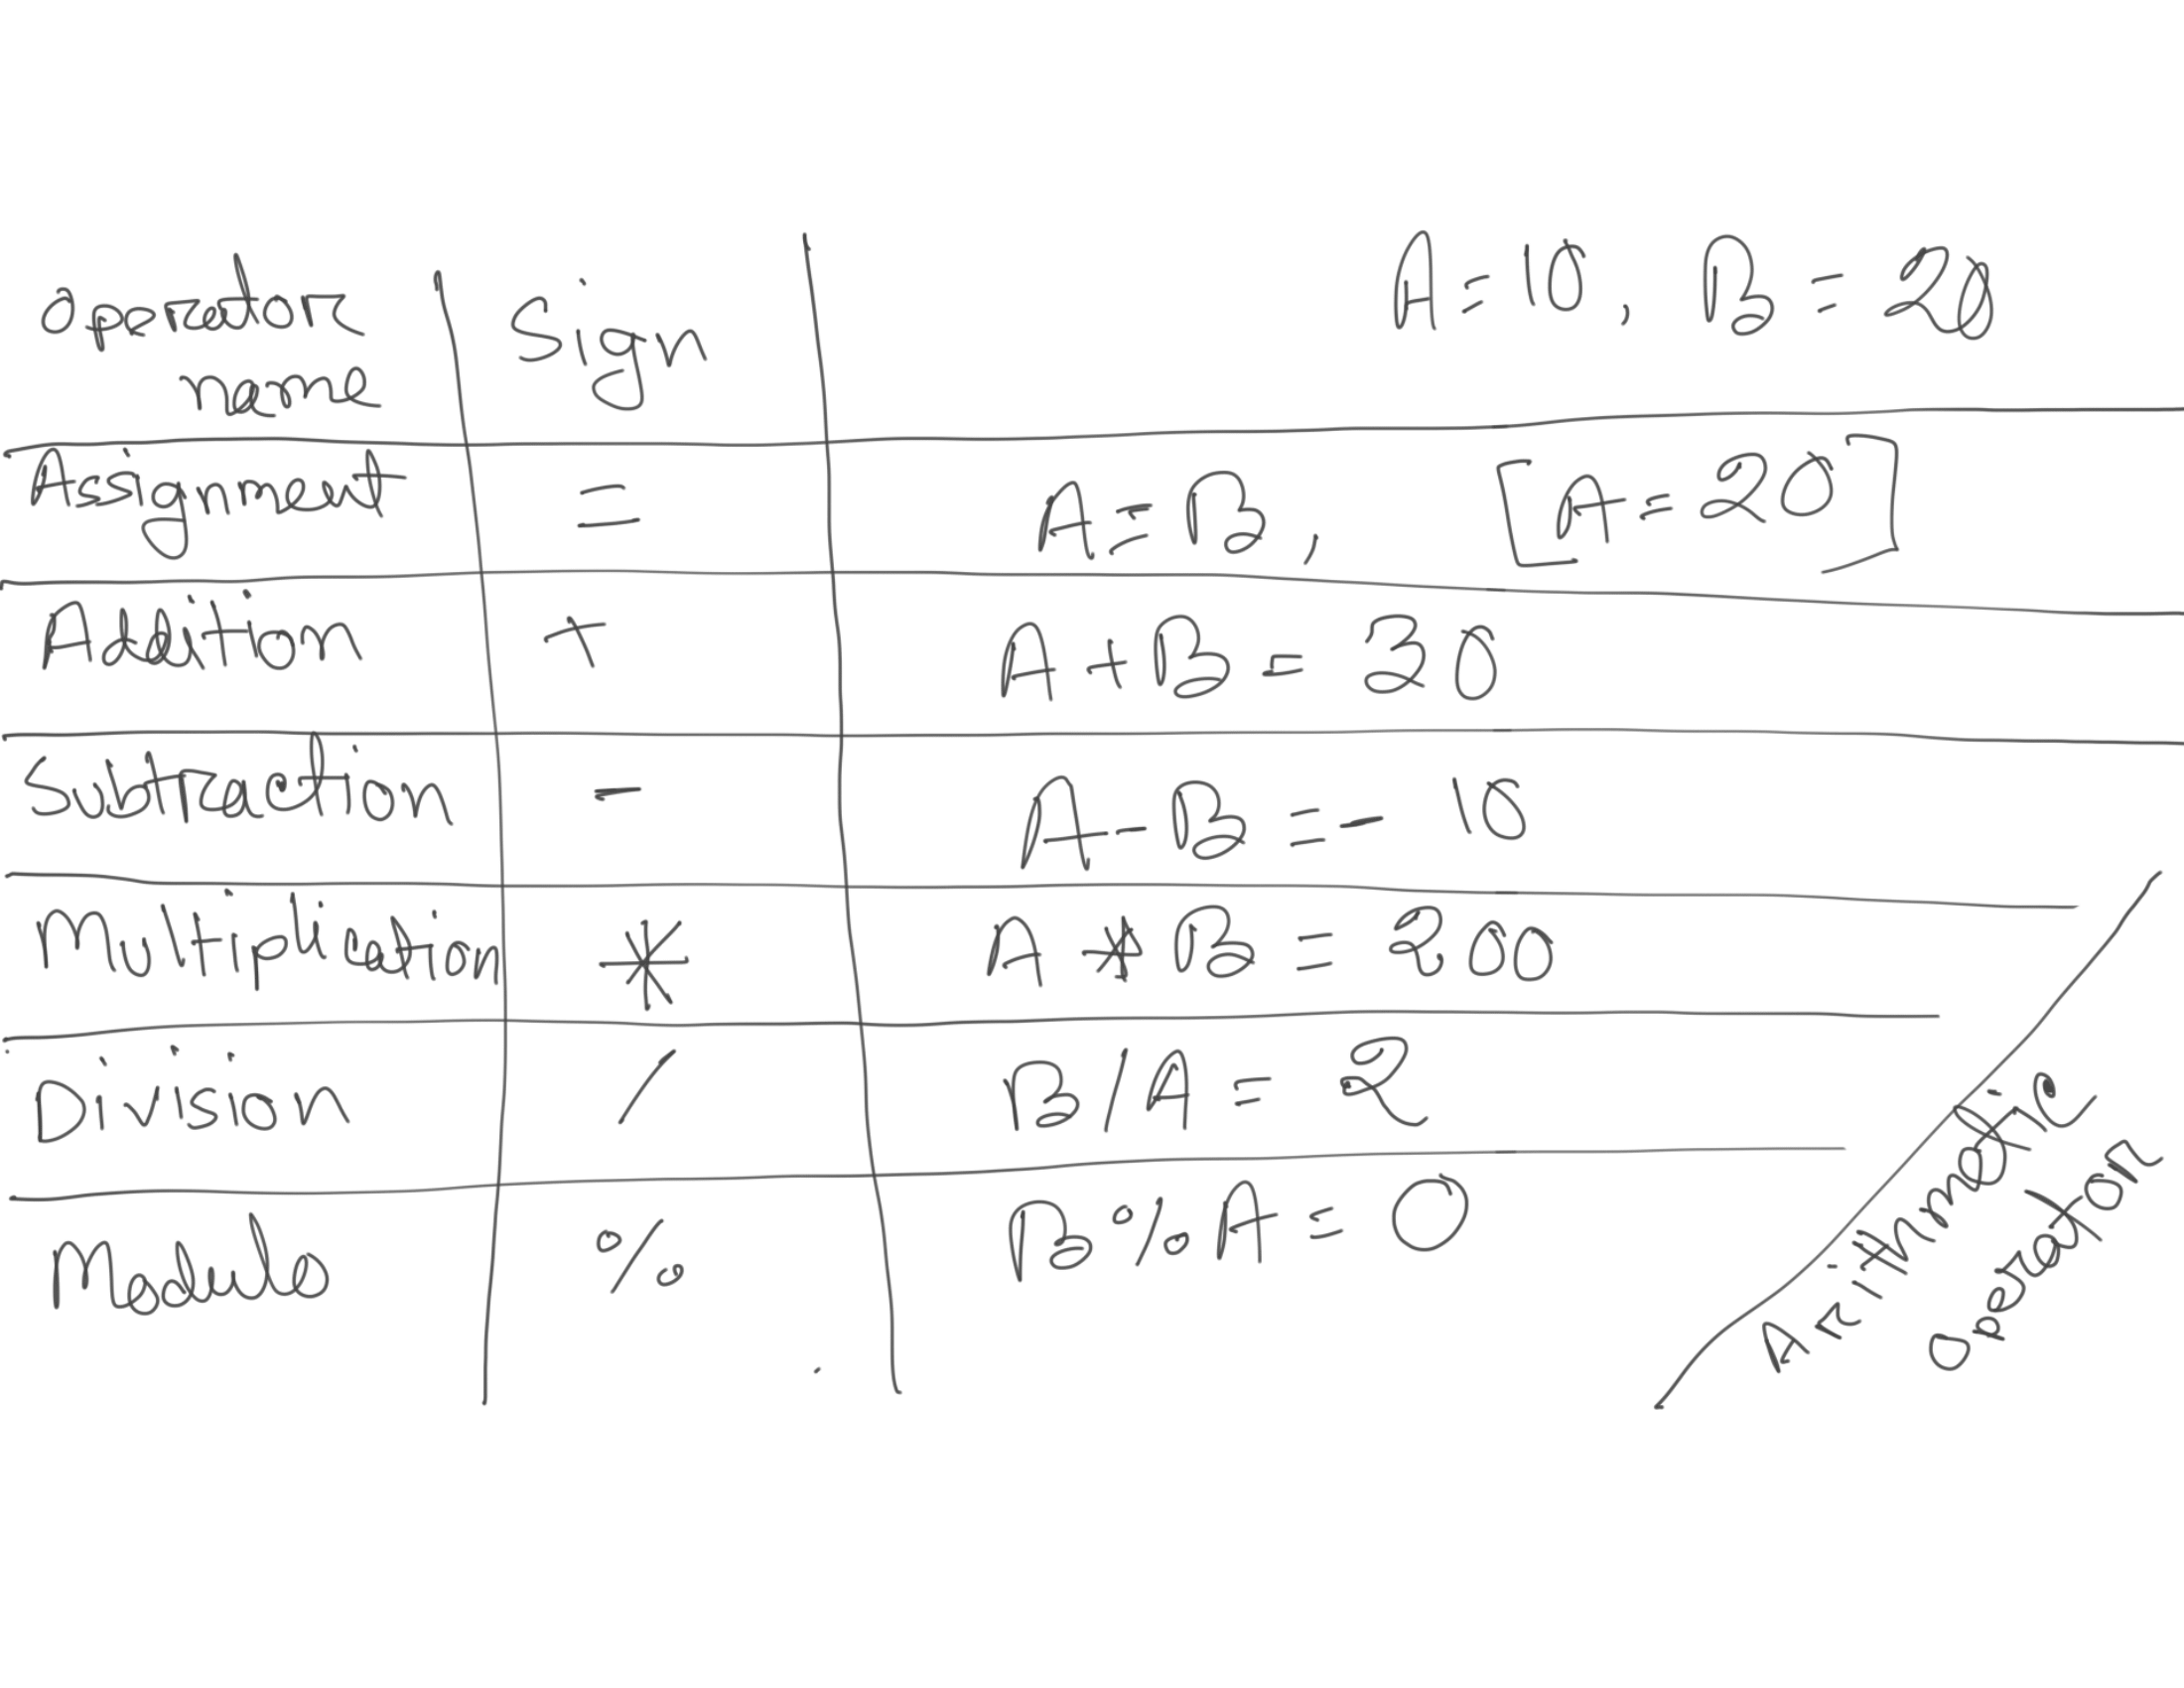 Operator Sign A = 10, B = 20
name
Assignment = A = B, [A = 20]
Addition + A + B = 30
Subtraction - A - B = - 10
Multiplication * A * B = 200
Division / B/A = 2
Modulus % B % A = 0
Arithmetic
Operator